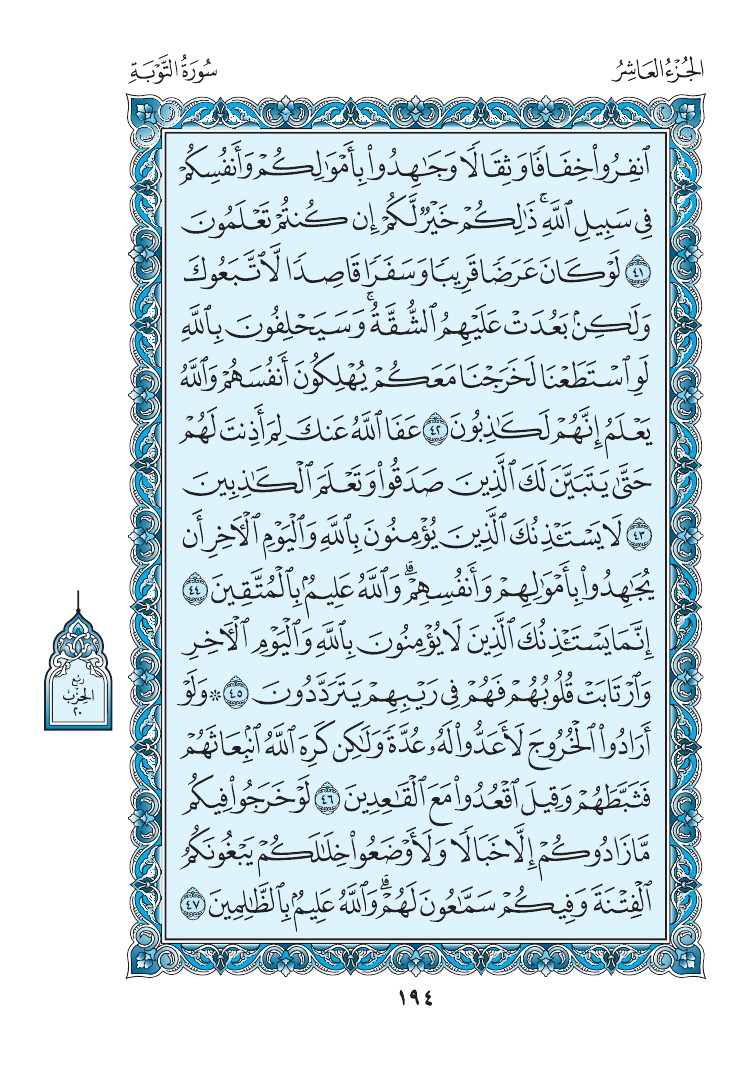 الجُزْءُ العَاشِرُ
سُورَةُ التَّوْبَةِ
ٱنفِرُواْ خِفَافٗا وَثِقَالٗا وَجَٰهِدُواْ بِأَمۡوَٰلِكُمۡ وَأَنفُسِكُمۡ
فِي سَبِيلِ ٱللَّهِۚ ذَٰلِكُمۡ خَيۡرٞ لَّكُمۡ إِن كُنتُمۡ تَعۡلَمُونَ
٤١ لَوۡ كَانَ عَرَضٗا قَرِيبٗا وَسَفَرٗا قَاصِدٗا لَّٱتَّبَعُوكَ
وَلَٰكِنۢ بَعُدَتۡ عَلَيۡهِمُ ٱلشُّقَّةُۚ وَسَيَحۡلِفُونَ بِٱللَّهِ
لَوِ ٱسۡتَطَعۡنَا لَخَرَجۡنَا مَعَكُمۡ يُهۡلِكُونَ أَنفُسَهُمۡ وَٱللَّهُ
يَعۡلَمُ إِنَّهُمۡ لَكَٰذِبُونَ ٤٢ عَفَا ٱللَّهُ عَنكَ لِمَ أَذِنتَ لَهُمۡ
حَتَّىٰ يَتَبَيَّنَ لَكَ ٱلَّذِينَ صَدَقُواْ وَتَعۡلَمَ ٱلۡكَٰذِبِينَ
٤٣ لَا يَسۡتَـٔۡذِنُكَ ٱلَّذِينَ يُؤۡمِنُونَ بِٱللَّهِ وَٱلۡيَوۡمِ ٱلۡأٓخِرِ أَن
يُجَٰهِدُواْ بِأَمۡوَٰلِهِمۡ وَأَنفُسِهِمۡۗ وَٱللَّهُ عَلِيمُۢ بِٱلۡمُتَّقِينَ ٤٤
إِنَّمَا يَسۡتَـٔۡذِنُكَ ٱلَّذِينَ لَا يُؤۡمِنُونَ بِٱللَّهِ وَٱلۡيَوۡمِ ٱلۡأٓخِرِ
وَٱرۡتَابَتۡ قُلُوبُهُمۡ فَهُمۡ فِي رَيۡبِهِمۡ يَتَرَدَّدُونَ ٤٥ ۞ وَلَوۡ
أَرَادُواْ ٱلۡخُرُوجَ لَأَعَدُّواْ لَهُۥ عُدَّةٗ وَلَٰكِن كَرِهَ ٱللَّهُ ٱنۢبِعَاثَهُمۡ
فَثَبَّطَهُمۡ وَقِيلَ ٱقۡعُدُواْ مَعَ ٱلۡقَٰعِدِينَ ٤٦ لَوۡ خَرَجُواْ فِيكُم
مَّا زَادُوكُمۡ إِلَّا خَبَالٗا وَلَأَوۡضَعُواْ خِلَٰلَكُمۡ يَبۡغُونَكُمُ
ٱلۡفِتۡنَةَ وَفِيكُمۡ سَمَّٰعُونَ لَهُمۡۗ وَٱللَّهُ عَلِيمُۢ بِٱلظَّٰلِمِينَ ٤٧
ربع
الحزب
٢٠
١٩٤